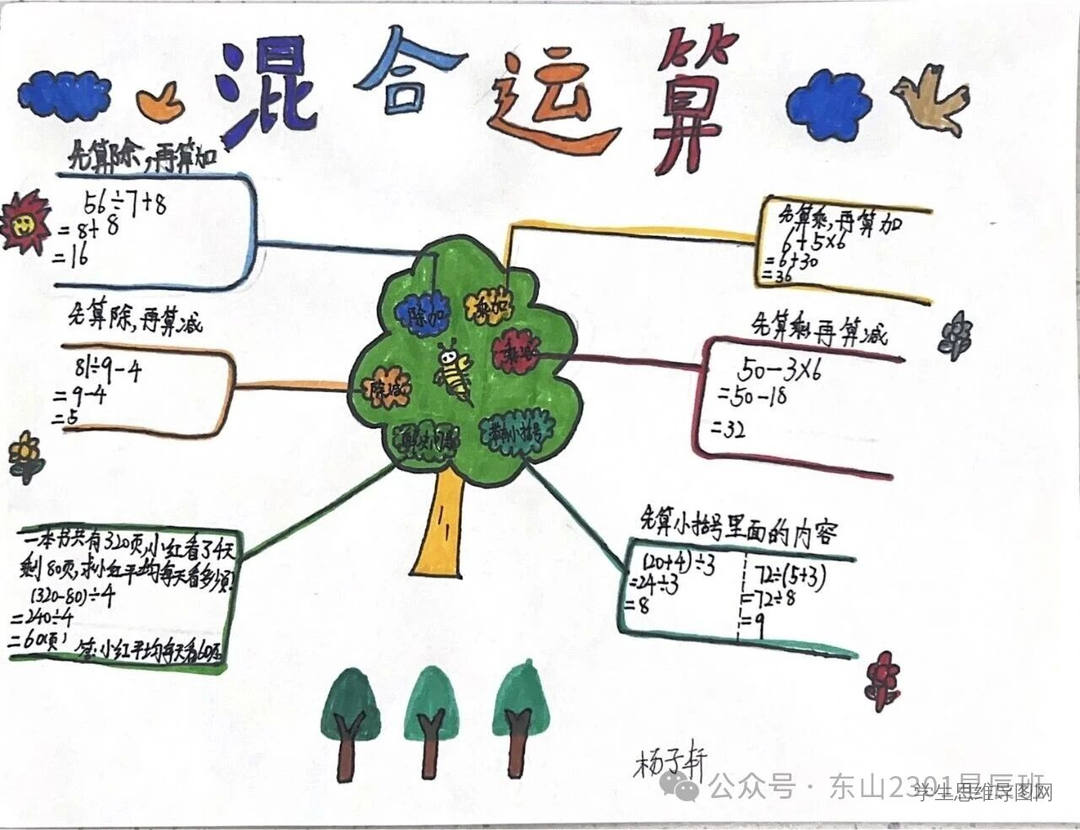 混合运算
先算除,再算加
56÷7+8
=8+8
=16
先算除,再算减
81÷9-4
=9-4
=5
一本书共有320页,小红看了4天
剩80页,求小红平均每天看多少页
(320-80)÷4
=240÷4
=60(页)
答:小红平均每天看60页
除加
乘加
乘减
除减
解决问题
带有小括号
先算乘,再算加
6+5×6
=6+30
=36
先算乘,再算减
50-3×6
=50-18
=32
先算小括号里面的内容
(20+4)÷3
=24÷3
=8
72÷(5+3)
=72÷8
=9
杨子轩
公众号·东山2301星辰班
学生思维导图网